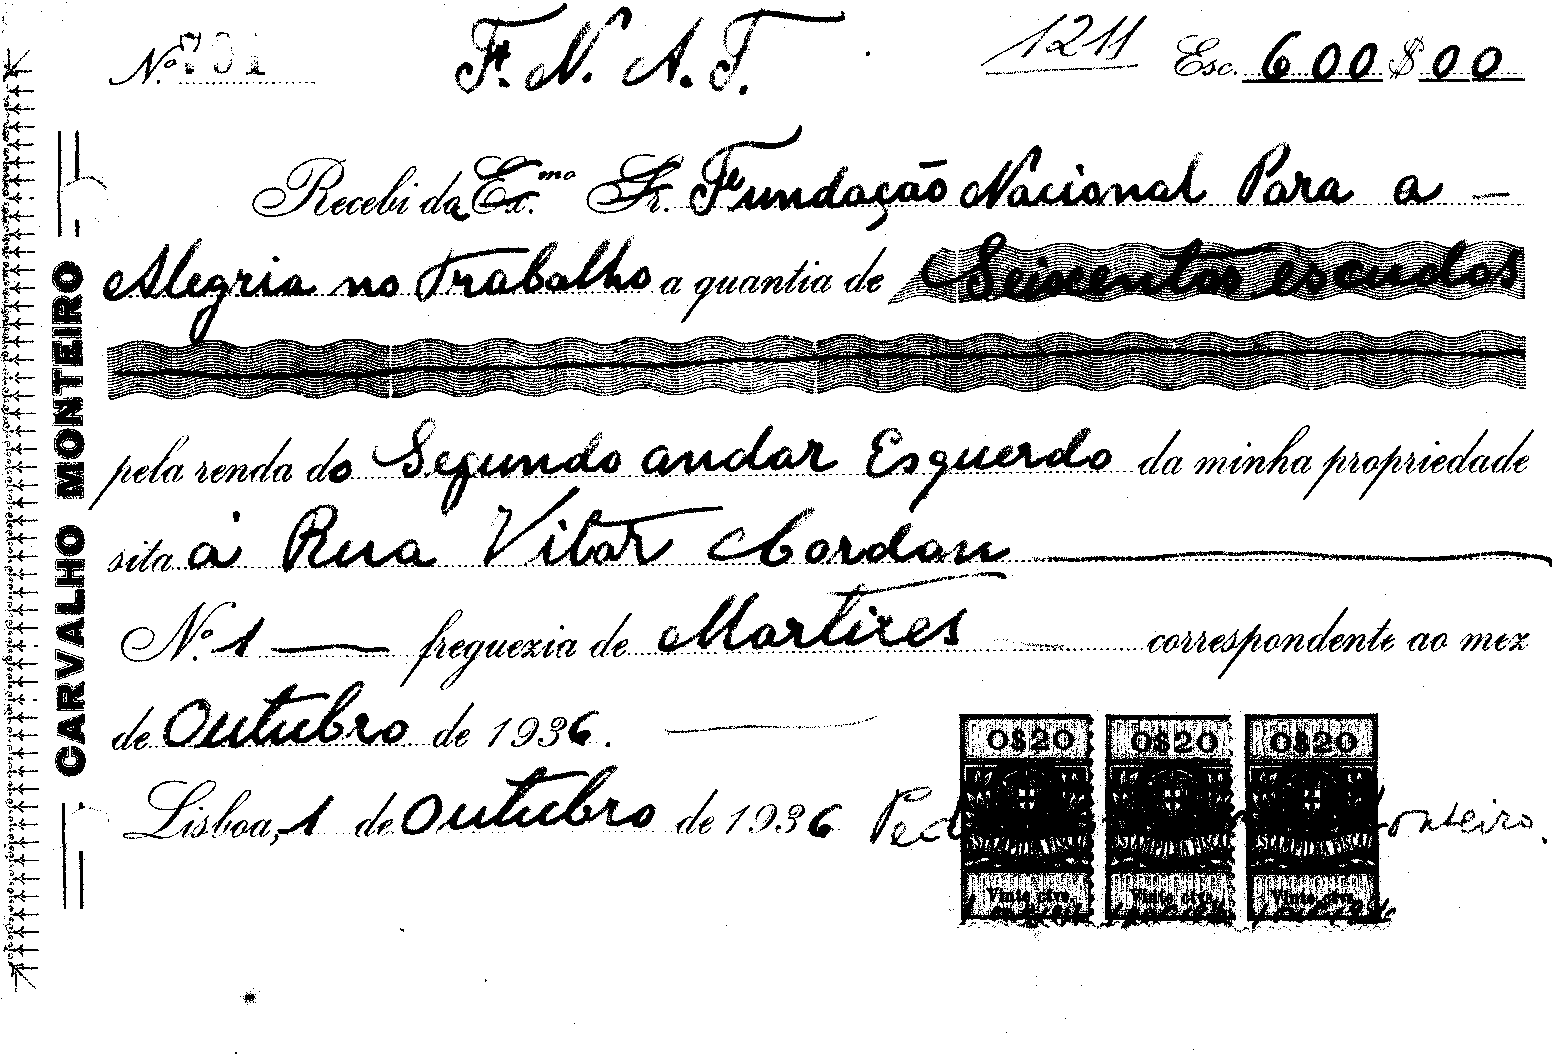 Nº 701 F. N. A. T. 1211 Esc. 600$00
Recebi da Ex.mo Sr. Fundação Nacional Para a —
Alegria no Trabalho a quantia de Seiscentos escudos
pela renda do Segundo andar Esquerdo da minha propriedade
sita à Rua Vitor Cordon
Nº 1 — freguezia de Martires — corresponden­te ao mez
de Outubro de 1936. —
Lisboa, 1 de Outubro de 1936
CARVALHO MONTEIRO
0$20 0$20 0$20
ESTAMPILHA FISCAL ESTAMPILHA FISCAL ESTAMPILHA FISCAL